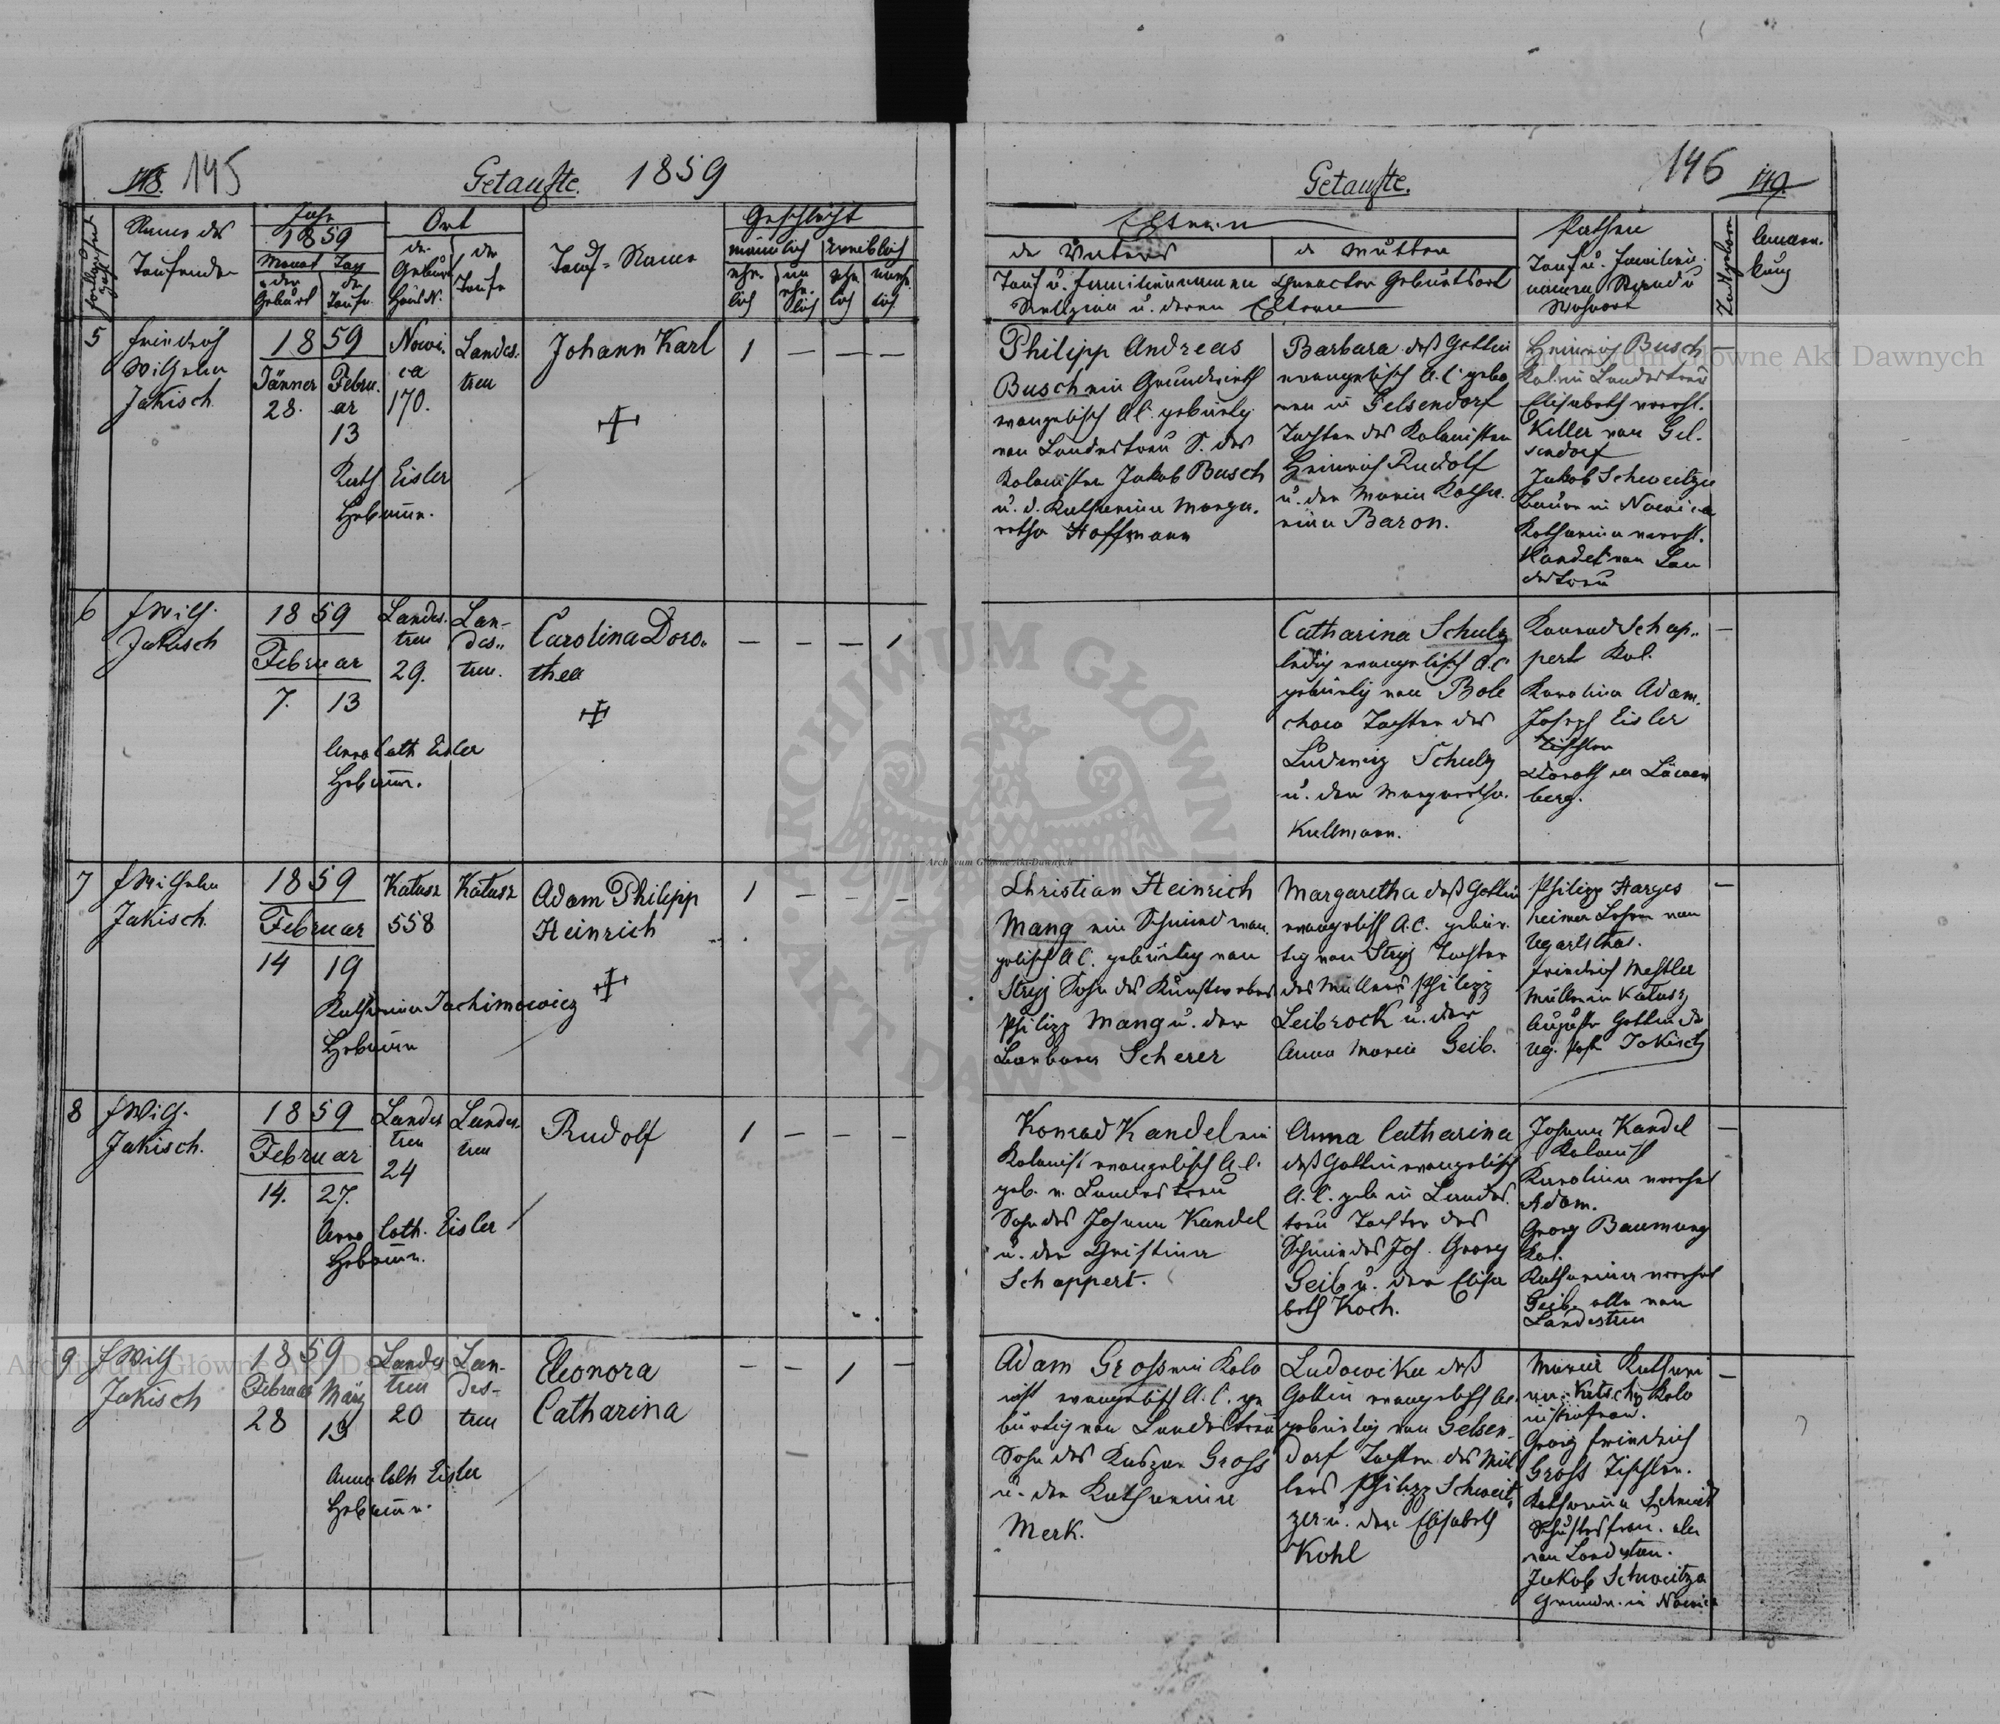 145
Getaufte. 1859
Jahr
1859
Ort
Geschlecht
Name des
Taufenden
Monat Tag
der
Geburt
der
Taufe
der
Geburt
Haus N.
der
Taufe
Tauf-Name
männlich weiblich
ehe-
lich
un
ehe-
lich
ehe-
lich
unehe-
lich
5
Friedrich
Wilhelm
Jakisch
1859
Jänner
28.
Febru-
ar
13
Nowi-
ca
170.
Landes-
treu
Johann Karl
1 — — —
Kath Eisler
Hebamme.
6
F Wilh.
Jakisch
1859
Februar
7. 13
Landes-
treu
29.
Lan-
des-
treu.
Carolina Doro-
thea
— — — 1
Anna Cath Eisler
Hebamme.
7
F Wilhelm
Jakisch.
1859
Februar
14 19
Kalusz
558
Kalusz
Adam Philipp
Heinrich
1 — — —
Katharina Jachimowicz
Hebamme
8
F Wilh.
Jakisch.
1859
Februar
14. 27.
Landes
treu
24
Landes-
treu
Rudolf
1 — — —
Anna Cath. Eisler
Hebamme.
9
F Wilh
Jakisch
1859
Februar
28
März
13
Landes
treu
20
Lan-
des-
treu
Eleonora
Catharina
— — 1 —
Anna Cath Eisler
Hebamme.
Getaufte.
146
149.
Eltern
des Vaters
der Mutter
Tauf u. Familiennamen Character Geburtsort
Religion u. deren Eltern
Pathen
Tauf u. Familien-
namen Stand u
Wohnort
Philipp Andreas
Busch ein Grundwirth
evangelisch A.C. gebürtig
von Landestreu S. des
Kolonisten Jakob Busch
u. d. Katharina Marga-
retha Hoffmann
Barbara deß Gattin
evangelisch A.C. gebo-
ren in Gelsendorf
Tochter des Kolonisten
Heinrich Rudolf
u. der Maria Katha-
rina Baron.
Heinrich Busch
Kol. in Landestreu
Elisabeth verehl.
Keller von Gel-
sendorf
Jakob Schweitzer
Bauer in Nowica
Katharina verehl.
Kandel von Lan
destreu
Catharina Schulz
ledig evangelisch A.C.
gebürtig von Bole
chow Tochter des
Ludwig Schulz
u. der Margaretha
Kullmann.
Konrad Schap-
pert Kol.
Karolina Adam.
Joseph Eisler
Tischler
Dorothea Löwen
berg.
Christian Heinrich
Mang ein Schmied evan-
gelisch A.C. gebürtig von
Stryj Sohn des Kunstwebers
Philipp Mang u. der
Barbara Scherer
Margaretha deß Gattin
evangelisch A.C. gebür-
tig von Stryj Tochter
des Müllers Philipp
Leibrock u. der
Anna Maria Geib.
Philipp Harges
heimer Lehrer von
Ugartsthal.
Friedrich Mestler
Müller in Kalusz
Auguste Gattin des
Ug. Past. Jakisch
Konrad Kandel ein
Kolonist evangelisch A.C.
geb. v. Landestreu
Sohn des Johann Kandel
u. der Christina
Schappert.
Anna Catharina
deß Gattin evangelisch
A.C. geb in Landes-
treu Tochter des
Schmiedes Joh. Georg
Geib u. der Elisa
beth Koch.
Johann Kandel
Kolonist
Karolina verehel
Adam.
Georg Baumung
Kol.
Katharina verehel
Geib alle von
Landestreu
Adam Gross ein Kolo
nist evangelisch A.C. ge
bürtig von Landestreu
Sohn des Kaspar Gross
u. der Katharina
Merk.
Ludowika deß
Gattin evangelisch A.C.
gebürtig von Gelsen-
dorf Tochter des Mül
lers Philipp Schweit
zer u. der Elisabeth
Kohl
Maria Kathari
na Kolo
nistinfrau.
Georg Friedrich
Gross Tischler.
Katharina Schmidt
Schustersfrau. alle
von Landestreu.
Jakob Schweitzer
Grundw. in Nowica
Archiwum Główne Akt Dawnych
Archiwum Główne Akt Dawnych
Archiwum Główne Akt Dawnych
ARCHIWUM GŁÓWNE AKT DAWNYCH